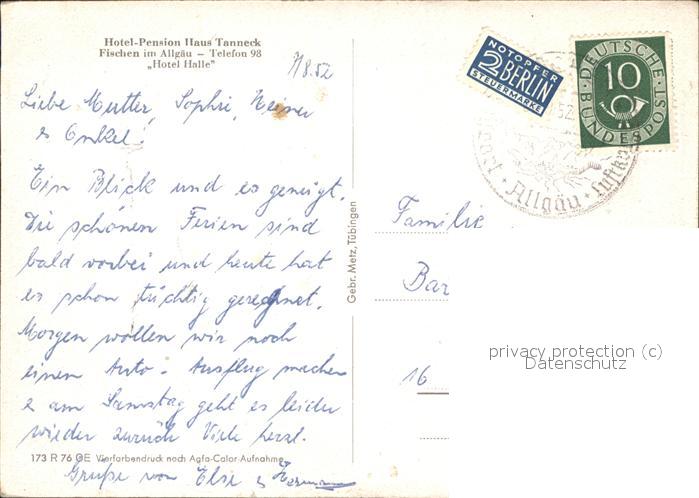 Hotel-Pension Haus Tanneck
Fischen im Allgäu – Telefon 98
„Hotel Halle"
7/8.52
Liebe Mutter, Sophie, Heiner
& Onkel!
Ein Blick und es genügt.
Die schönen Ferien sind
bald vorbei und heute hat
es schon tüchtig geregnet.
Morgen wollen wir noch
einen Auto-Ausflug machen
& am Samstag geht es leider
wieder zurück Viele herzl.
173 R 76 GE Vierfarbendruck nach Agfa-Color-Aufnahme
Grüße von Else & Hermann
Gebr. Metz, Tübingen
NOTOPFER
2 BERLIN
STEUERMARKE
DEUTSCHE
10
BUNDESPOST
52
Allgäu
Familie
Bar
16
privacy protection (c)
Datenschutz